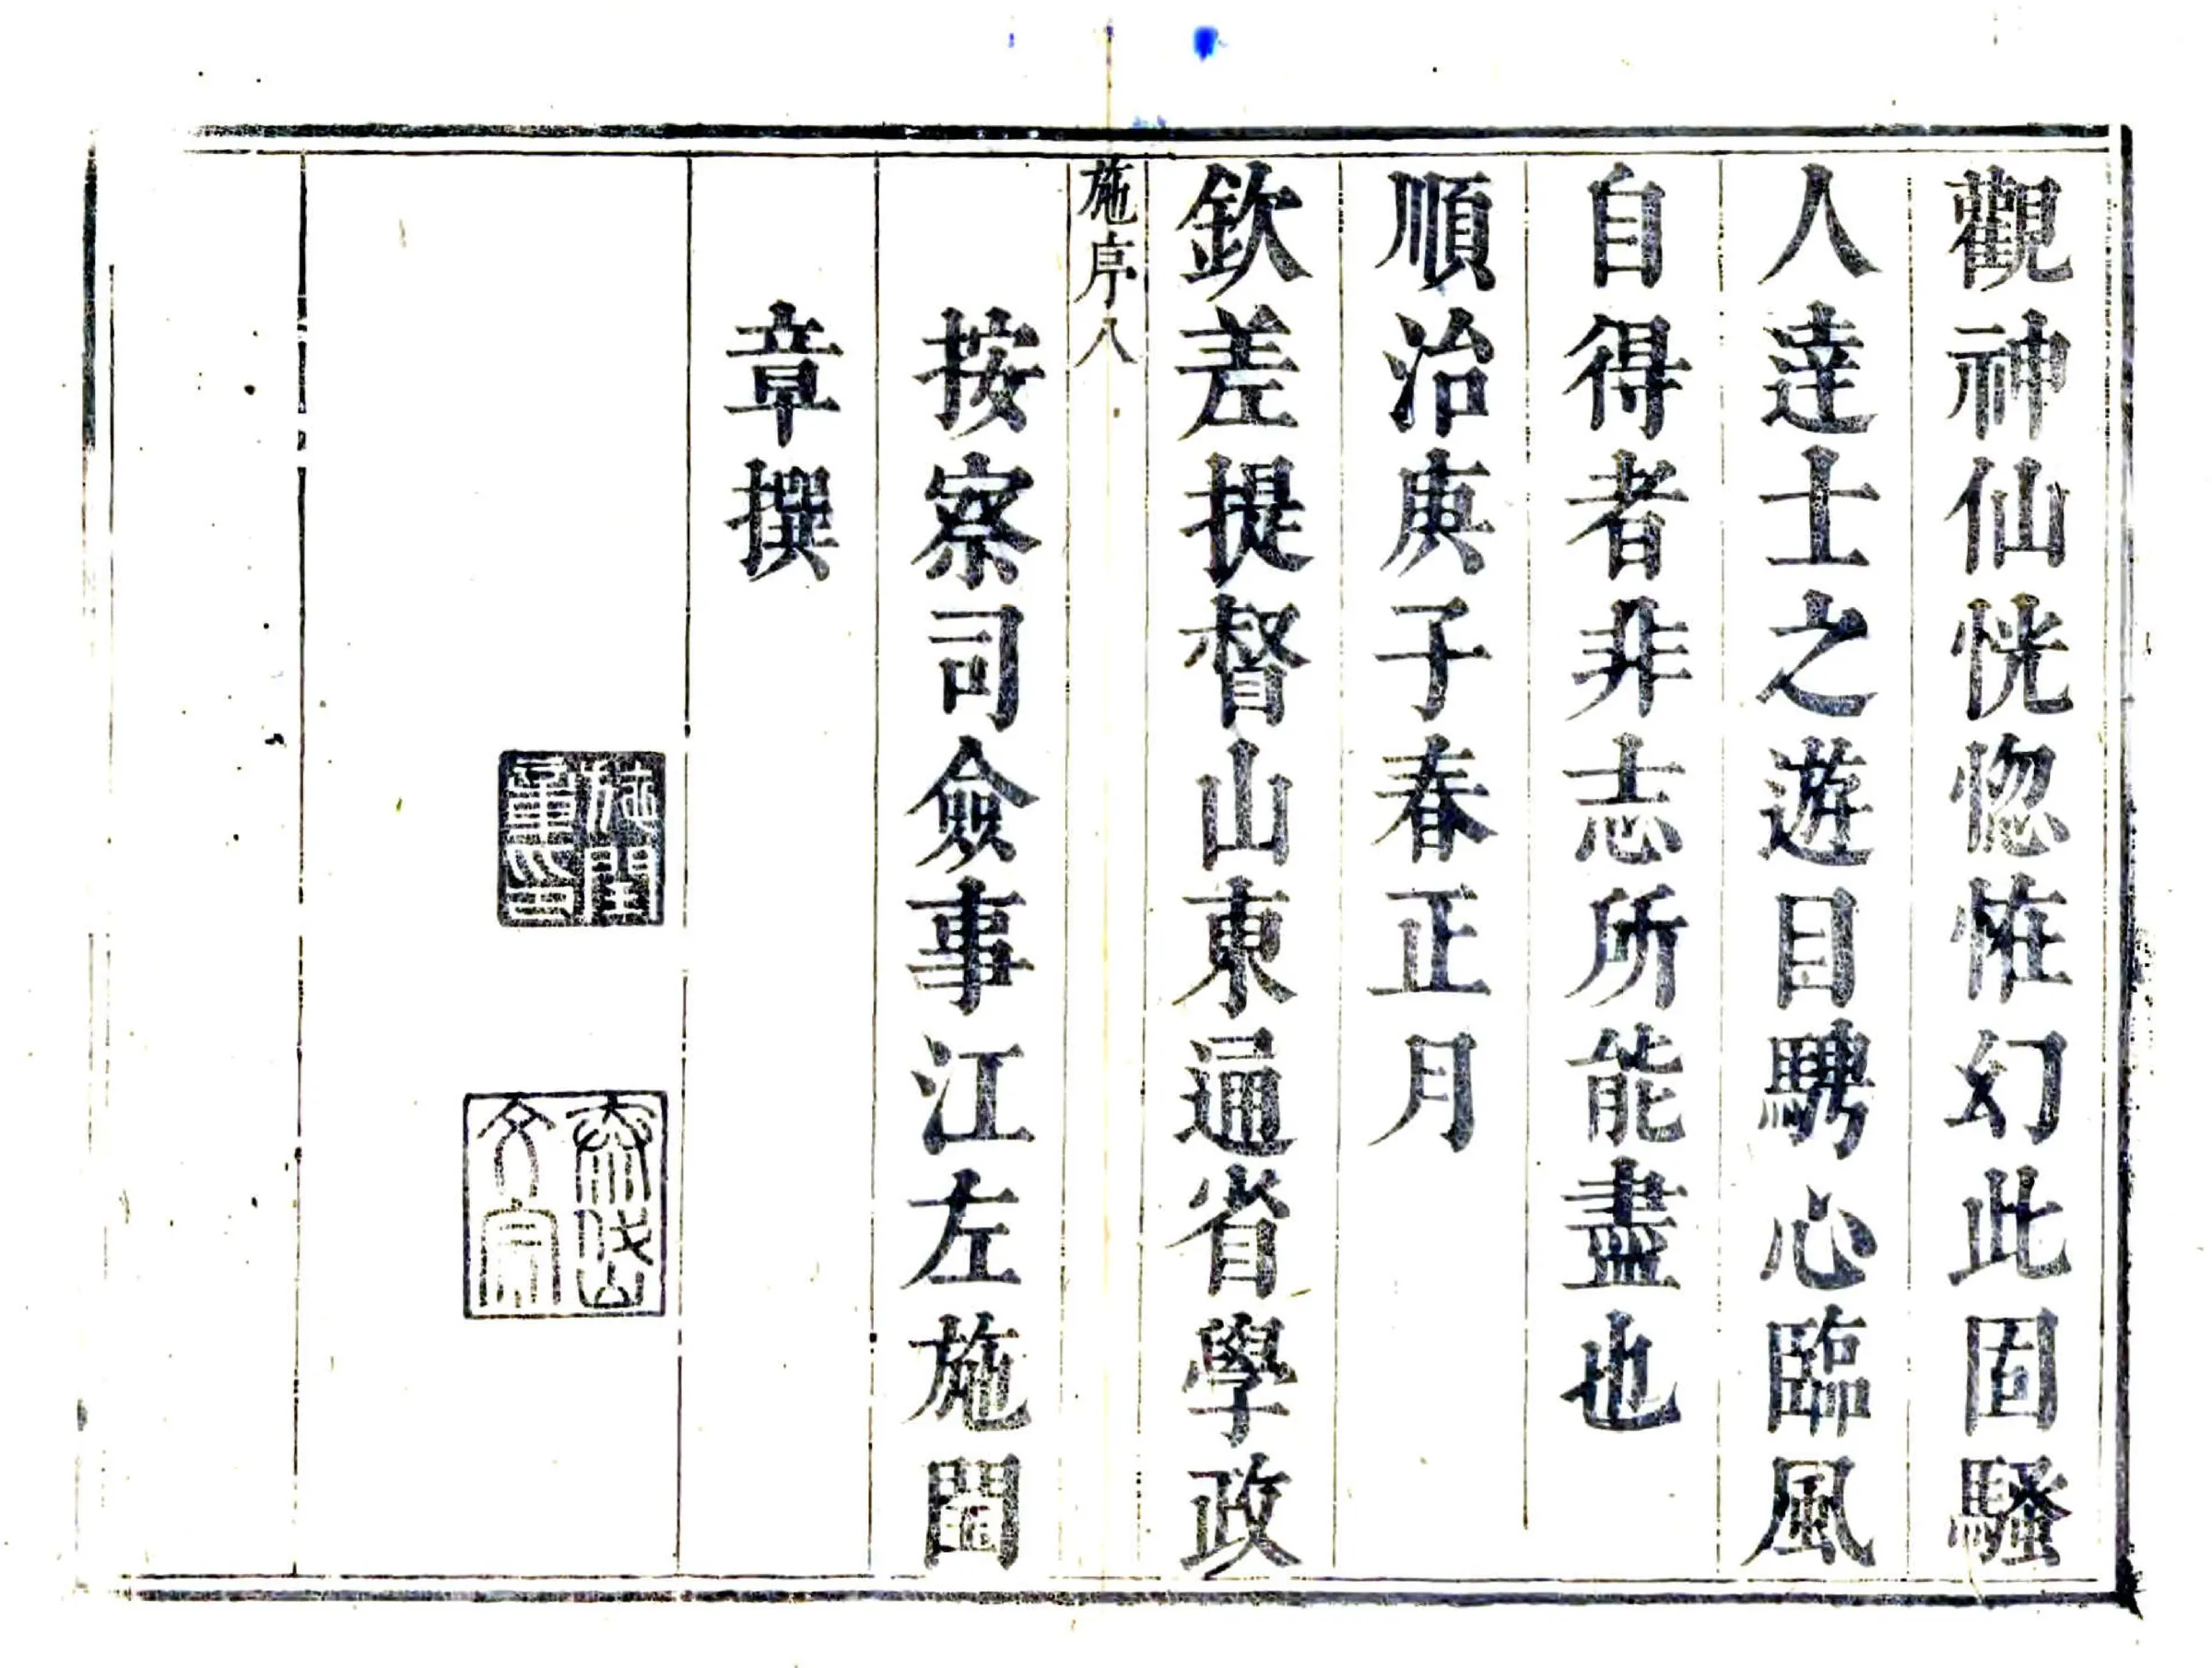 觀神仙恍惚恠幻此固騷
人逹士之遊目騁心臨風
自得者非志所能盡也
順治庚子春正月
欽差提督山東通省學政
施序八
按察司僉事江左施閏
章撰
施閏章印
泰岱文宗